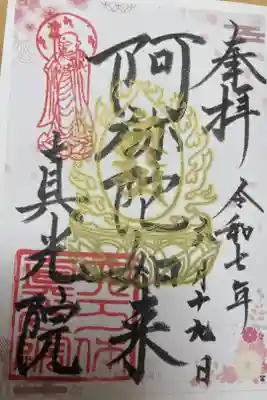 奉拝 令和七年
月十九日
阿弥陀如来
真光院